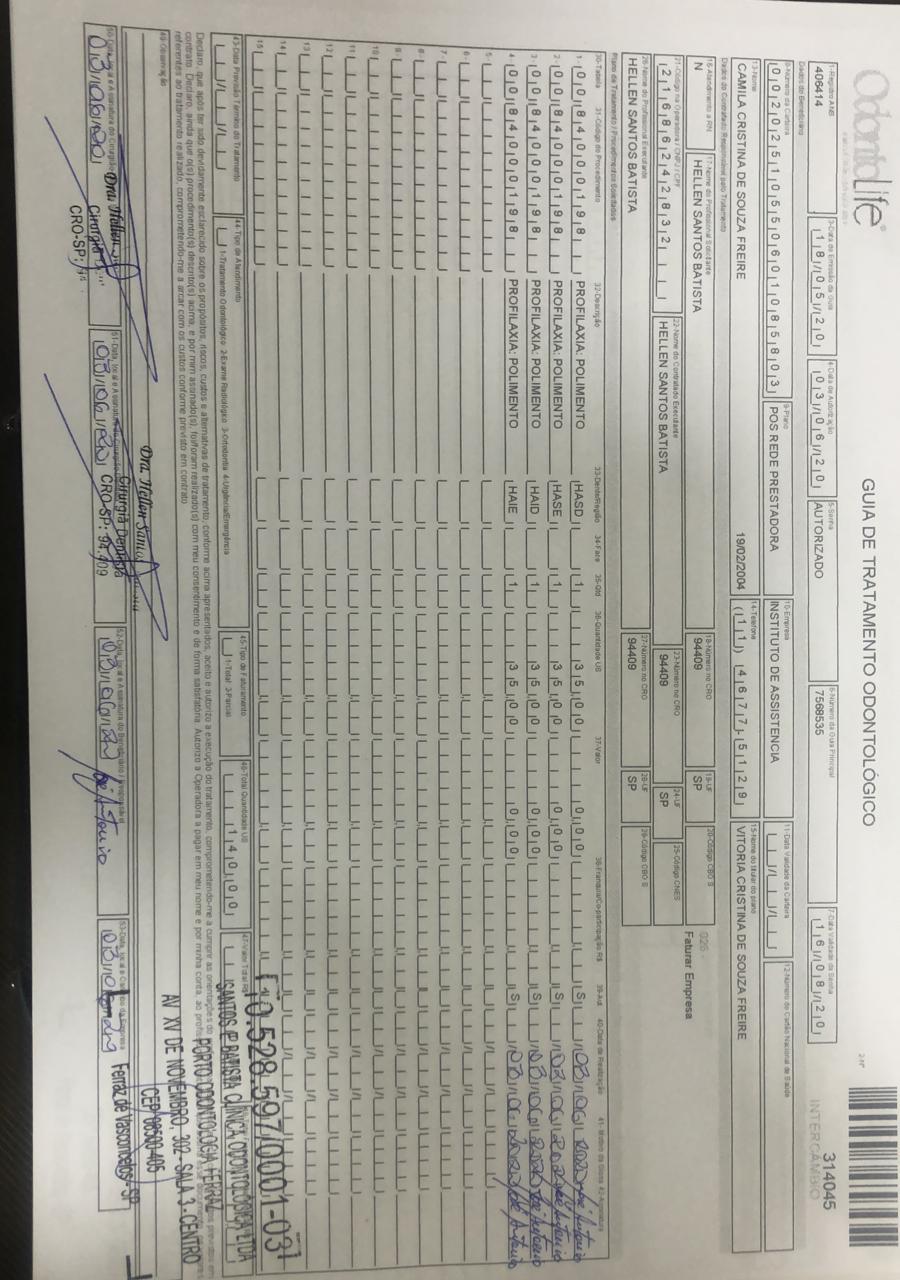 OdontoLife®
GUIA DE TRATAMENTO ODONTOLÓGICO
2-Nº
314045
INTERCÂMBIO
1-Registro ANS
406414
3-Data de Emissão da Guia
18/05/20
4-Data de Autorização
03/06/20
5-Senha
AUTORIZADO
6-Número da Guia Principal
7568535
7-Data Validade da Senha
16/08/20
Dados do Beneficiário
8-Número da Carteira
00202510550601085803
9-Plano
POS REDE PRESTADORA
10-Empresa
INSTITUTO DE ASSISTENCIA
11-Data Validade da Carteira
12-Número do Cartão Nacional de Saúde
13-Nome
CAMILA CRISTINA DE SOUZA FREIRE
19/02/2004
14-Telefone
(11) 4677-5129
15-Nome do titular do plano
VITORIA CRISTINA DE SOUZA FREIRE
Dados do Contratado Responsável pelo Tratamento
16-Atendimento a RN
N
17-Nome do Profissional Solicitante
HELLEN SANTOS BATISTA
18-Número no CRO
94409
19-UF
SP
20-Código CBO S
025 -
Faturar Empresa
21-Código na Operadora / CNPJ / CPF
21686242832
22-Nome do Contratado Executante
HELLEN SANTOS BATISTA
23-Número no CRO
94409
24-UF
SP
25-Código CNES
26-Nome do Profissional Executante
HELLEN SANTOS BATISTA
27-Número no CRO
94409
28-UF
SP
29-Código CBO S
Plano de Tratamento / Procedimentos Solicitados
30-Tabela 31-Código do Procedimento 32-Descrição 33-Dente/Região 34-Face 35-Qtd 36-Quantidade US 37-Valor 38-Franquia/Co-participação R$ 39-Aut 40-Data de Realização
1- 00 84000198 PROFILAXIA: POLIMENTO HASD 1 35,00 0,00 S 03/06/2020
2- 00 84000198 PROFILAXIA: POLIMENTO HASE 1 35,00 0,00 S 03/06/2020
3- 00 84000198 PROFILAXIA: POLIMENTO HAID 1 35,00 0,00 S 03/06/2020
4- 00 84000198 PROFILAXIA: POLIMENTO HAIE 1 35,00 0,00 S 03/06/2020
5-
6-
7-
8-
9-
10-
11-
12-
13-
14-
15-
43-Data Previsão Término do Tratamento
44-Tipo de Atendimento
1-Tratamento Odontológico 2-Exame Radiológico 3-Ortodontia 4-Urgência/Emergência
45-Tipo de Faturamento
1-Total 2-Parcial
46-Total Quantidade US
140,00
47-Valor Total R$
Declaro, que após ter sido devidamente esclarecido sobre os propósitos, riscos, custos e alternativas de tratamento, conforme acima apresentados, aceito e autorizo a execução do tratamento, comprometendo-me a cumprir as orientações do
contrato. Declaro, ainda que o(s) procedimento(s) descrito(s) acima, e por mim assinado(s), foi/foram realizado(s) com meu consentimento e de forma satisfatória. Autorizo a Operadora a pagar em meu nome e por minha conta, ao
referentes ao tratamento realizado, comprometendo-me a arcar com os custos conforme previsto em contrato
49-Observação
10.528.597/0001-03
SANTOS E BATISTA CLÍNICA ODONTOLÓGICA LTDA
PORTO ODONTOLOGIA FERRAZ
AV XV DE NOVEMBRO, 302 - SALA 3 - CENTRO
CEP 08500-405
Ferraz de Vasconcelos - SP
Dra. Hellen Santos Batista
Cirurgiã Dentista
CRO-SP: 94.409
Dra. Hellen
Cirurgiã
CRO-SP: